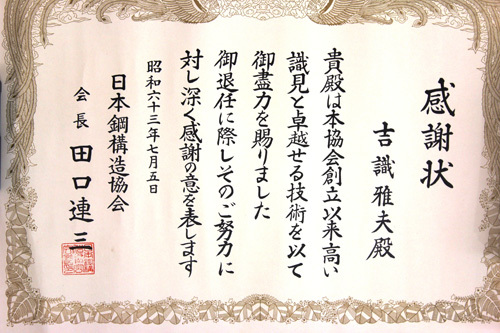 感謝状
吉識雅夫殿
貴殿は本協会創立以来高い
識見と卓越せる技術を以て
御盡力を賜りました
御退任に際しそのご努力に
対し深く感謝の意を表します
昭和六十三年七月五日
日本鋼構造協会
会長 田口連三